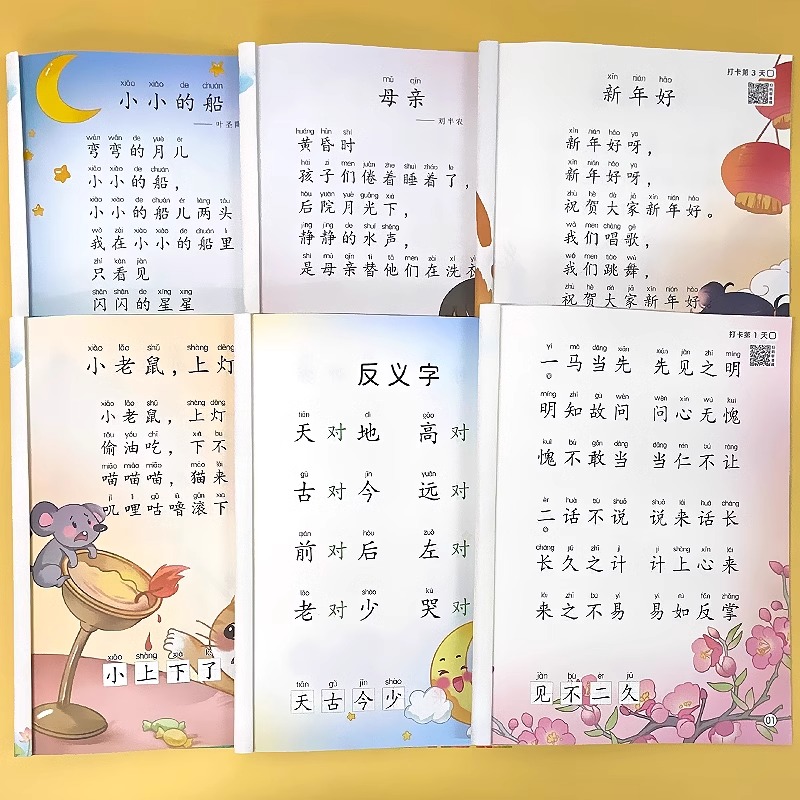 xiǎo xiǎo de chuán
小小的船
——叶圣陶
wān wān de yuè ér
弯弯的月儿
xiǎo xiǎo de chuán
小小的船，
xiǎo xiǎo de chuán ér liǎng tóu
小小的船儿两头
wǒ zài xiǎo xiǎo de chuán lǐ
我在小小的船里
zhǐ kàn jiàn
只看见
shǎn shǎn de xīng xīng
闪闪的星星
mǔ qīn
母亲
——刘半农
huáng hūn shí
黄昏时
hái zi men juàn zhe shuì zháo le
孩子们倦着睡着了，
hòu yuàn yuè guāng xià
后院月光下，
jìng jìng de shuǐ shēng
静静的水声，
shì mǔ qīn tì tā men zài xǐ yī
是母亲替他们在洗衣
打卡第3天
xīn nián hǎo
新年好
xīn nián hǎo ya
新年好呀，
xīn nián hǎo ya
新年好呀，
zhù hè dà jiā xīn nián hǎo
祝贺大家新年好。
wǒ men chàng gē
我们唱歌，
wǒ men tiào wǔ
我们跳舞，
zhù hè dà jiā xīn nián hǎo
祝贺大家新年好
xiǎo lǎo shǔ shàng dēng
小老鼠，上灯
xiǎo lǎo shǔ shàng dēng
小老鼠，上灯
tōu yóu chī xià bù
偷油吃，下不
miāo miāo miāo māo lái
喵喵喵，猫来
jī lǐ gū lū gǔn xià
叽哩咕噜滚下
xiǎo shàng xià le
小上下了
反义字
tiān dì gāo
天对地 高对
gǔ jīn yuǎn
古对今 远对
qián hòu zuǒ
前对后 左对
lǎo shào kū
老对少 哭对
tiān gǔ jīn shào
天古今少
打卡第1天
yì mǎ dāng xiān xiān jiàn zhī míng
一马当先 先见之明
míng zhī gù wèn wèn xīn wú kuì
明知故问 问心无愧
kuì bù gǎn dāng dāng rén bú ràng
愧不敢当 当仁不让
èr huà bù shuō shuō lái huà cháng
二话不说 说来话长
cháng jiǔ zhī jì jì shàng xīn lái
长久之计 计上心来
lái zhī bú yì yì rú fǎn zhǎng
来之不易 易如反掌
jiàn bù èr jiǔ
见不二久
01